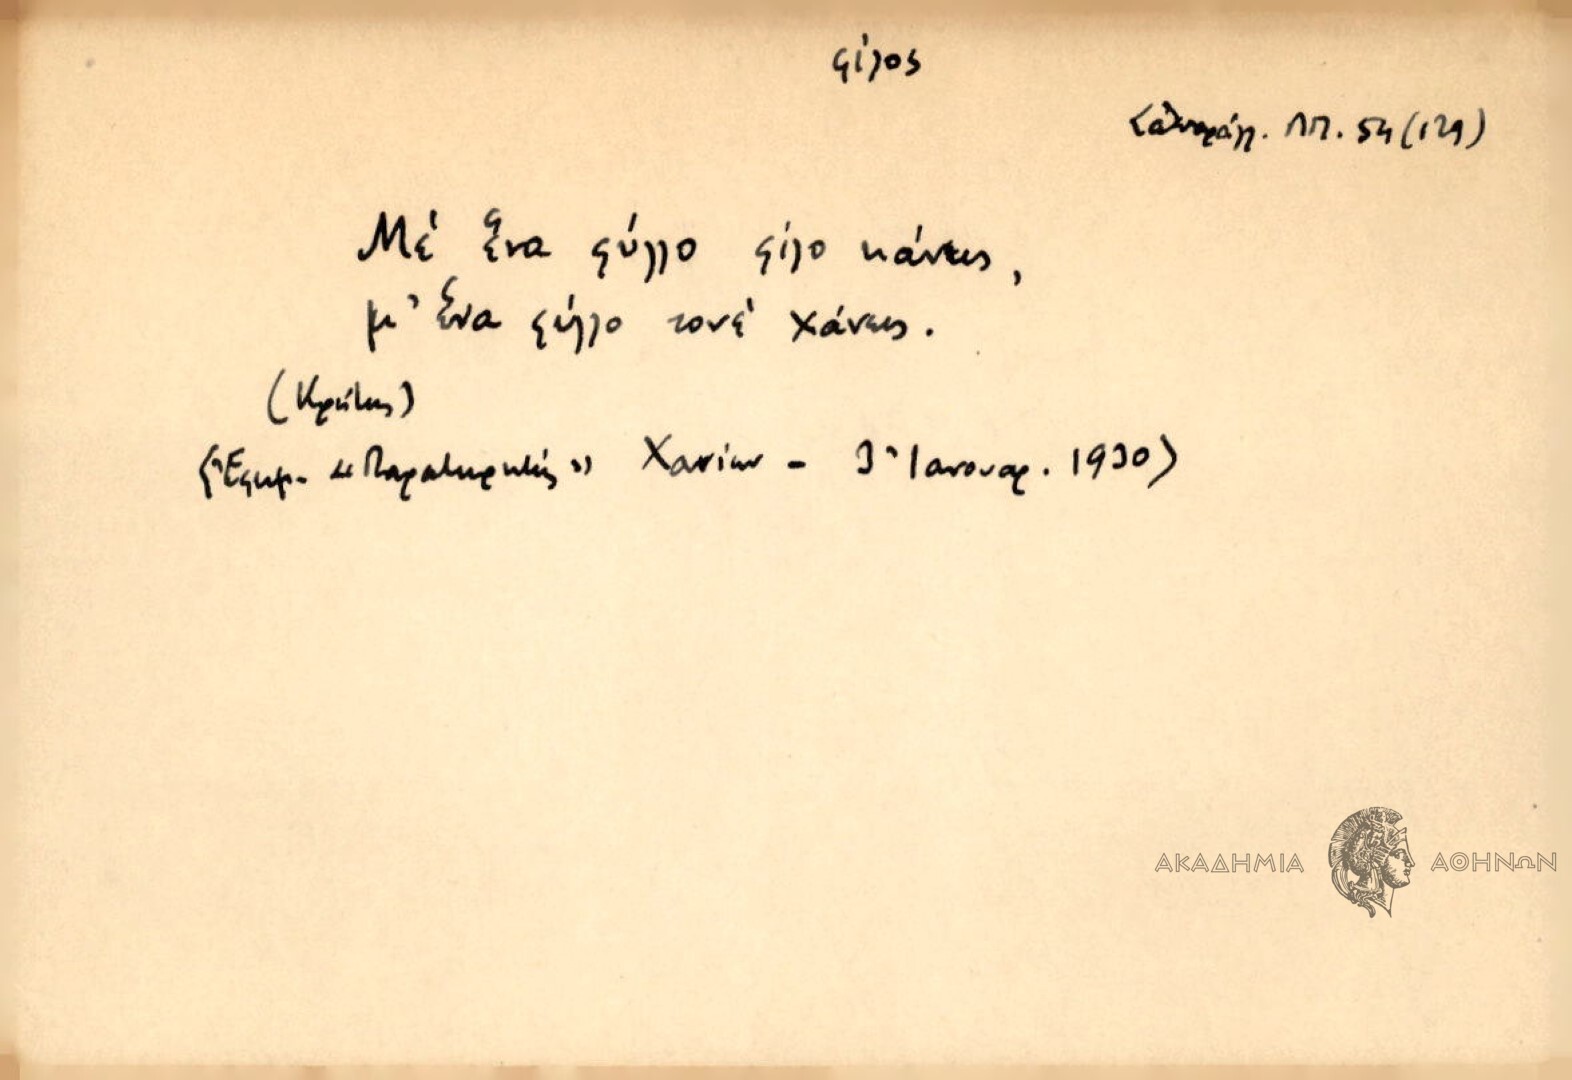 φίλος
ΛΠ. 54 (129)
Μέ ἕνα φύλλο φίλο κάνεις,
μ' ἕνα φύλλο τονέ χάνεις.
(Κρήτης)
Ἐφημ. «Παρατηρητής» Χανίων - 3 Ἰανουαρ. 1930>
ΑΚΑΔΗΜΙΑ ΑΘΗΝΩΝ